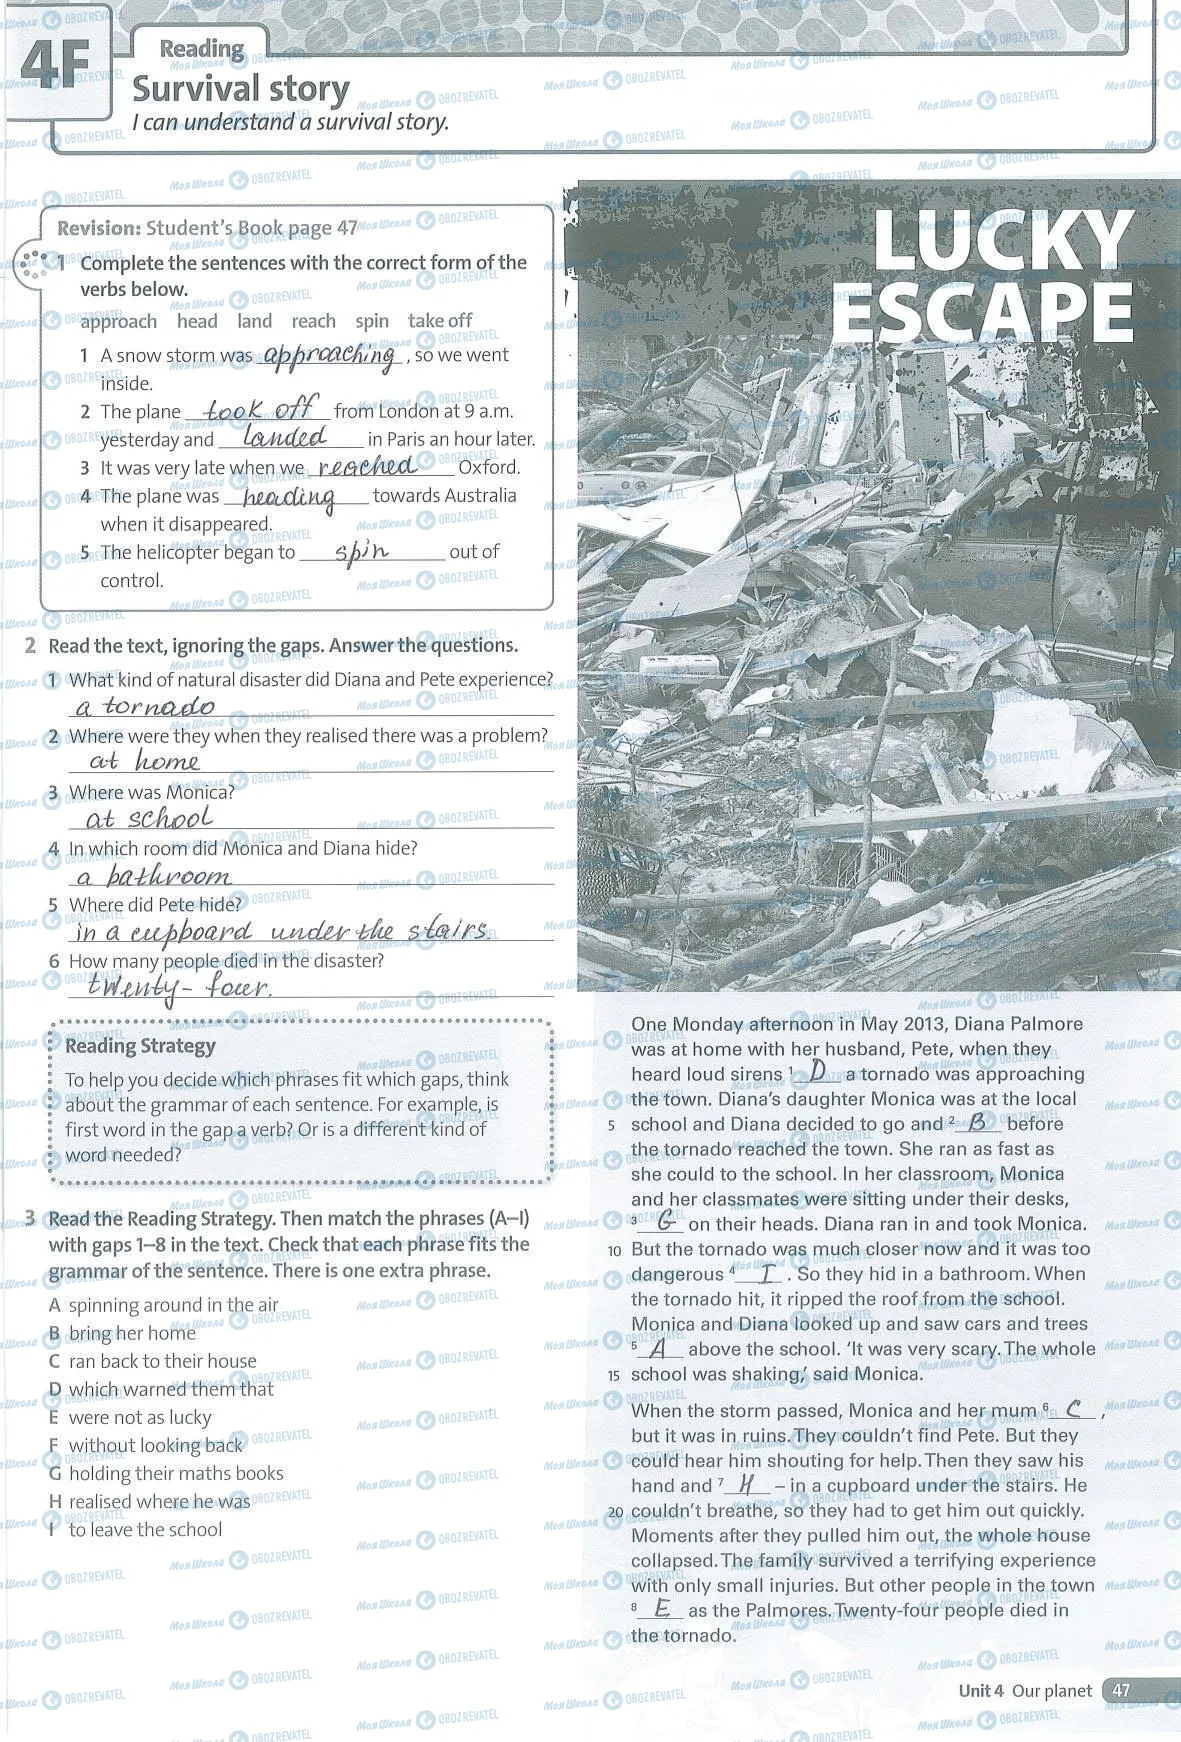 4F
Reading
Survival story
I can understand a survival story.
Revision: Student's Book page 47
1 Complete the sentences with the correct form of the
verbs below.
approach head land reach spin take off
1 A snow storm was approaching , so we went
inside.
2 The plane took off from London at 9 a.m.
yesterday and landed in Paris an hour later.
3 It was very late when we reached Oxford.
4 The plane was heading towards Australia
when it disappeared.
5 The helicopter began to spin out of
control.
2 Read the text, ignoring the gaps. Answer the questions.
1 What kind of natural disaster did Diana and Pete experience?
a tornado
2 Where were they when they realised there was a problem?
at home
3 Where was Monica?
at school
4 In which room did Monica and Diana hide?
a bathroom
5 Where did Pete hide?
in a cupboard under the stairs.
6 How many people died in the disaster?
twenty-four.
Reading Strategy
To help you decide which phrases fit which gaps, think
about the grammar of each sentence. For example, is
first word in the gap a verb? Or is a different kind of
word needed?
3 Read the Reading Strategy. Then match the phrases (A–I)
with gaps 1–8 in the text. Check that each phrase fits the
grammar of the sentence. There is one extra phrase.
A spinning around in the air
B bring her home
C ran back to their house
D which warned them that
E were not as lucky
F without looking back
G holding their maths books
H realised where he was
I to leave the school
LUCKY
ESCAPE
One Monday afternoon in May 2013, Diana Palmore
was at home with her husband, Pete, when they
heard loud sirens 1 D a tornado was approaching
the town. Diana's daughter Monica was at the local
5 school and Diana decided to go and 2 B before
the tornado reached the town. She ran as fast as
she could to the school. In her classroom, Monica
and her classmates were sitting under their desks,
3 G on their heads. Diana ran in and took Monica.
10 But the tornado was much closer now and it was too
dangerous 4 I . So they hid in a bathroom. When
the tornado hit, it ripped the roof from the school.
Monica and Diana looked up and saw cars and trees
5 A above the school. 'It was very scary. The whole
15 school was shaking,' said Monica.
When the storm passed, Monica and her mum 6 C ,
but it was in ruins. They couldn't find Pete. But they
could hear him shouting for help. Then they saw his
hand and 7 H – in a cupboard under the stairs. He
20 couldn't breathe, so they had to get him out quickly.
Moments after they pulled him out, the whole house
collapsed. The family survived a terrifying experience
with only small injuries. But other people in the town
8 E as the Palmores. Twenty-four people died in
the tornado.
Unit 4 Our planet 47
Моя Школа OBOZREVATEL